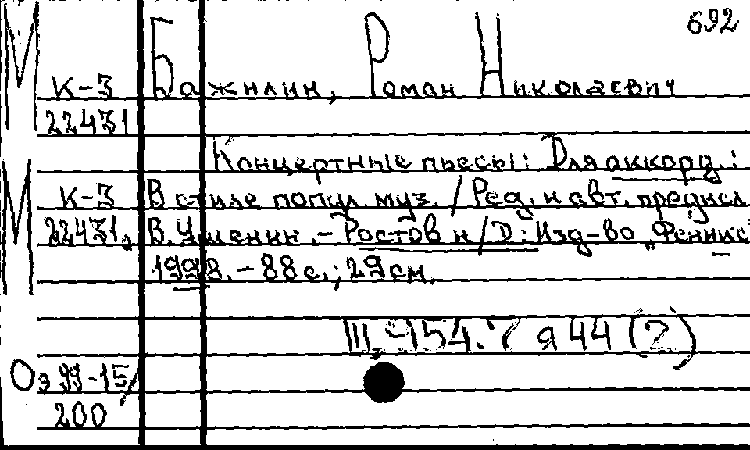 692
М К-3 Бажилин, Роман Николаевич
22431
Концертные пьесы: Для аккорд.:
М К-3 В стиле попул. муз. / Ред. и авт. предисл.
22431а В. Ушенин. - Ростов н/Д: Изд-во „Феникс
1998. - 88 с.; 29 см.
Щ954.7 я 44 (2)
Оэ 99-15/
200